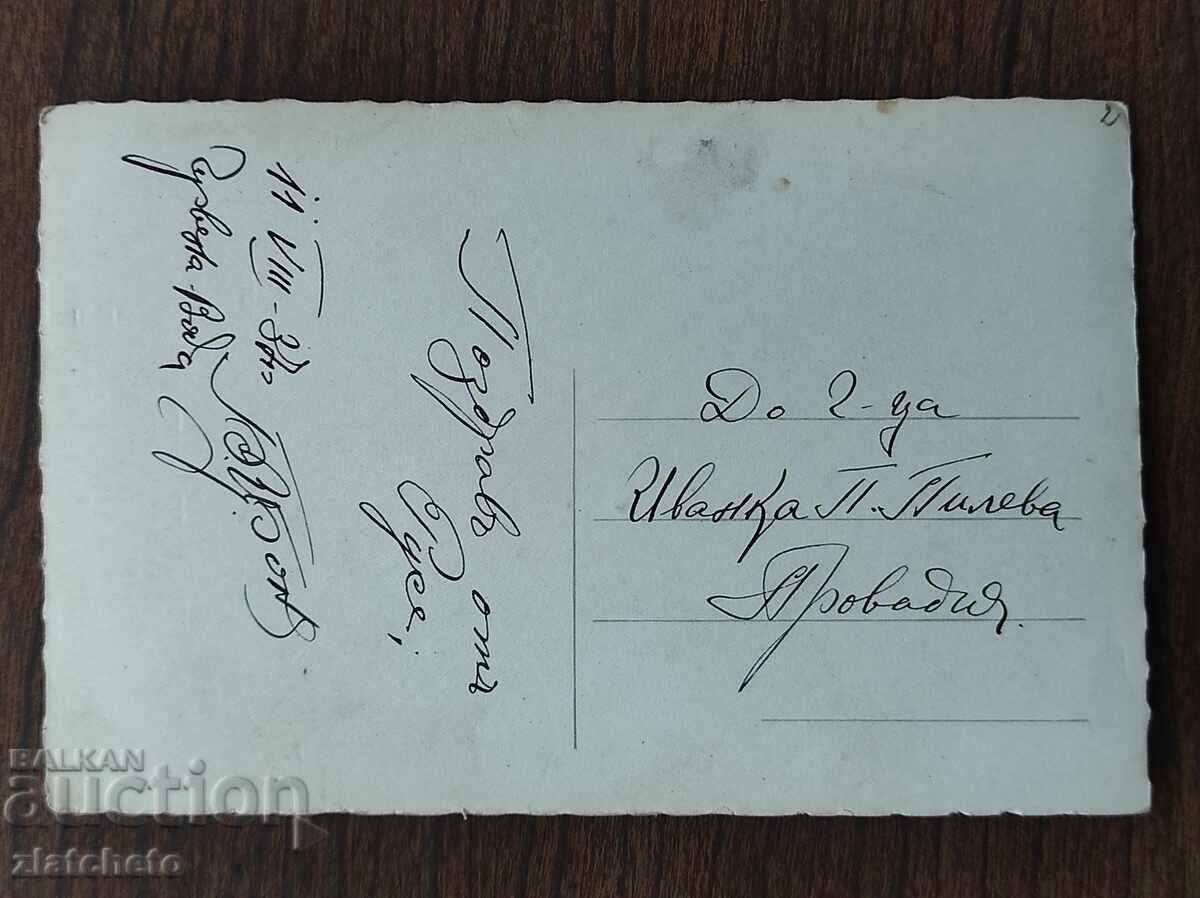 Поздравъ отъ
Русе,
11. VIII - 34
Червена-Вода
До г-ца
Иванка П. Пилева
Провадия.
2
BALKAN
auction
zlatcheto